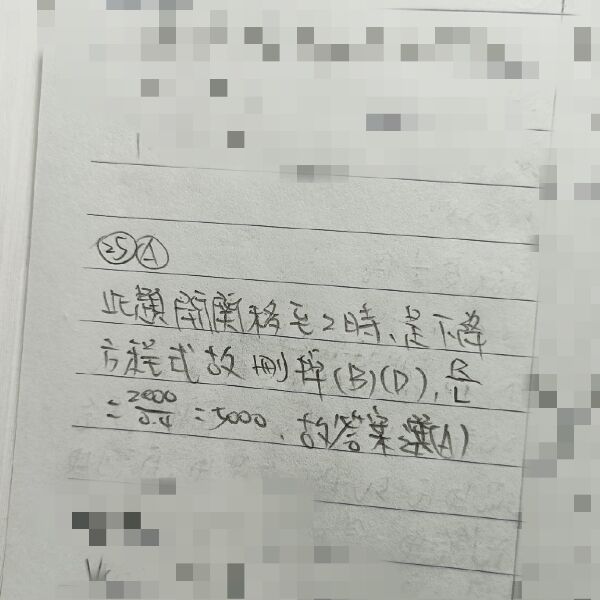 ㉕Ⓐ
此題開關移至2時、是下降
方程式故刪掉(B)(D), R/L
=2000/0.4=5000、故答案選(A)